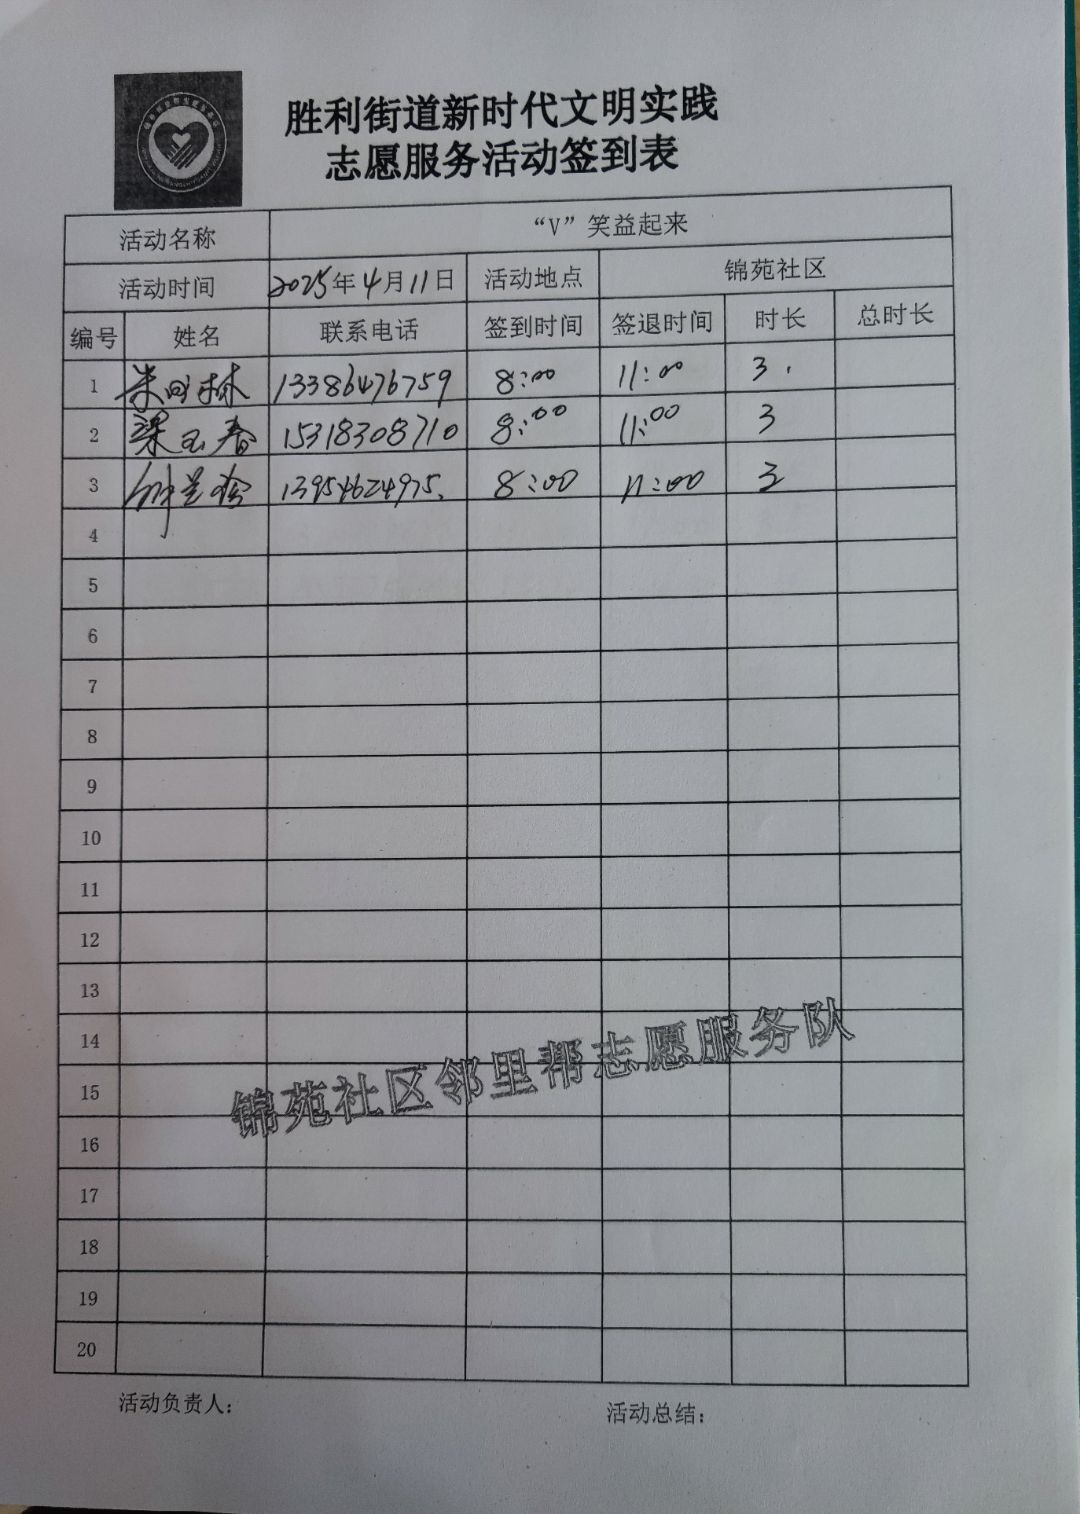 胜利街道新时代文明实践
志愿服务活动签到表
活动名称 “V”笑益起来
活动时间 2025年4月11日 活动地点 锦苑社区
编号 姓名 联系电话 签到时间 签退时间 时长 总时长
1 林 13386476759 8:00 11:00 3
2 梁玉春 15318308710 8:00 11:00 3
3 13954624975 8:00 11:00 3
4
5
6
7
8
9
10
11
12
13
14
15
16
17
18
19
20
锦苑社区邻里帮志愿服务队
活动负责人： 活动总结：